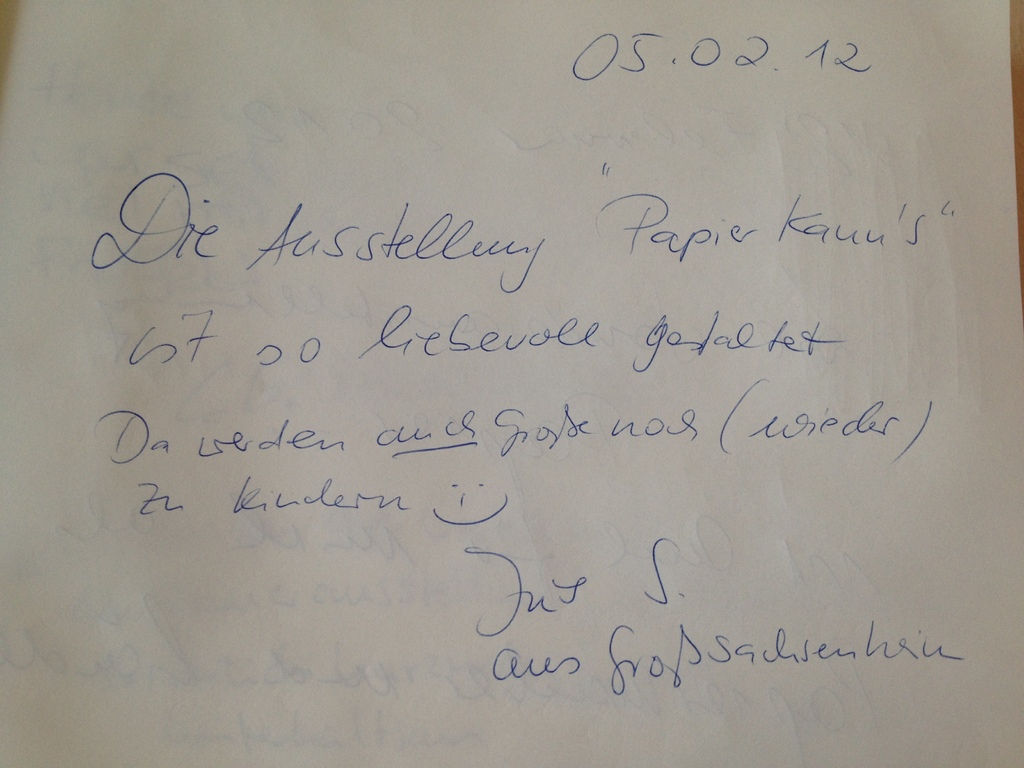 05.02.12
Die Ausstellung "Papier kann's"
ist so liebevoll gestaltet
Da werden auch Große noch (wieder)
zu kindern :)
S.
aus Großsachsenheim